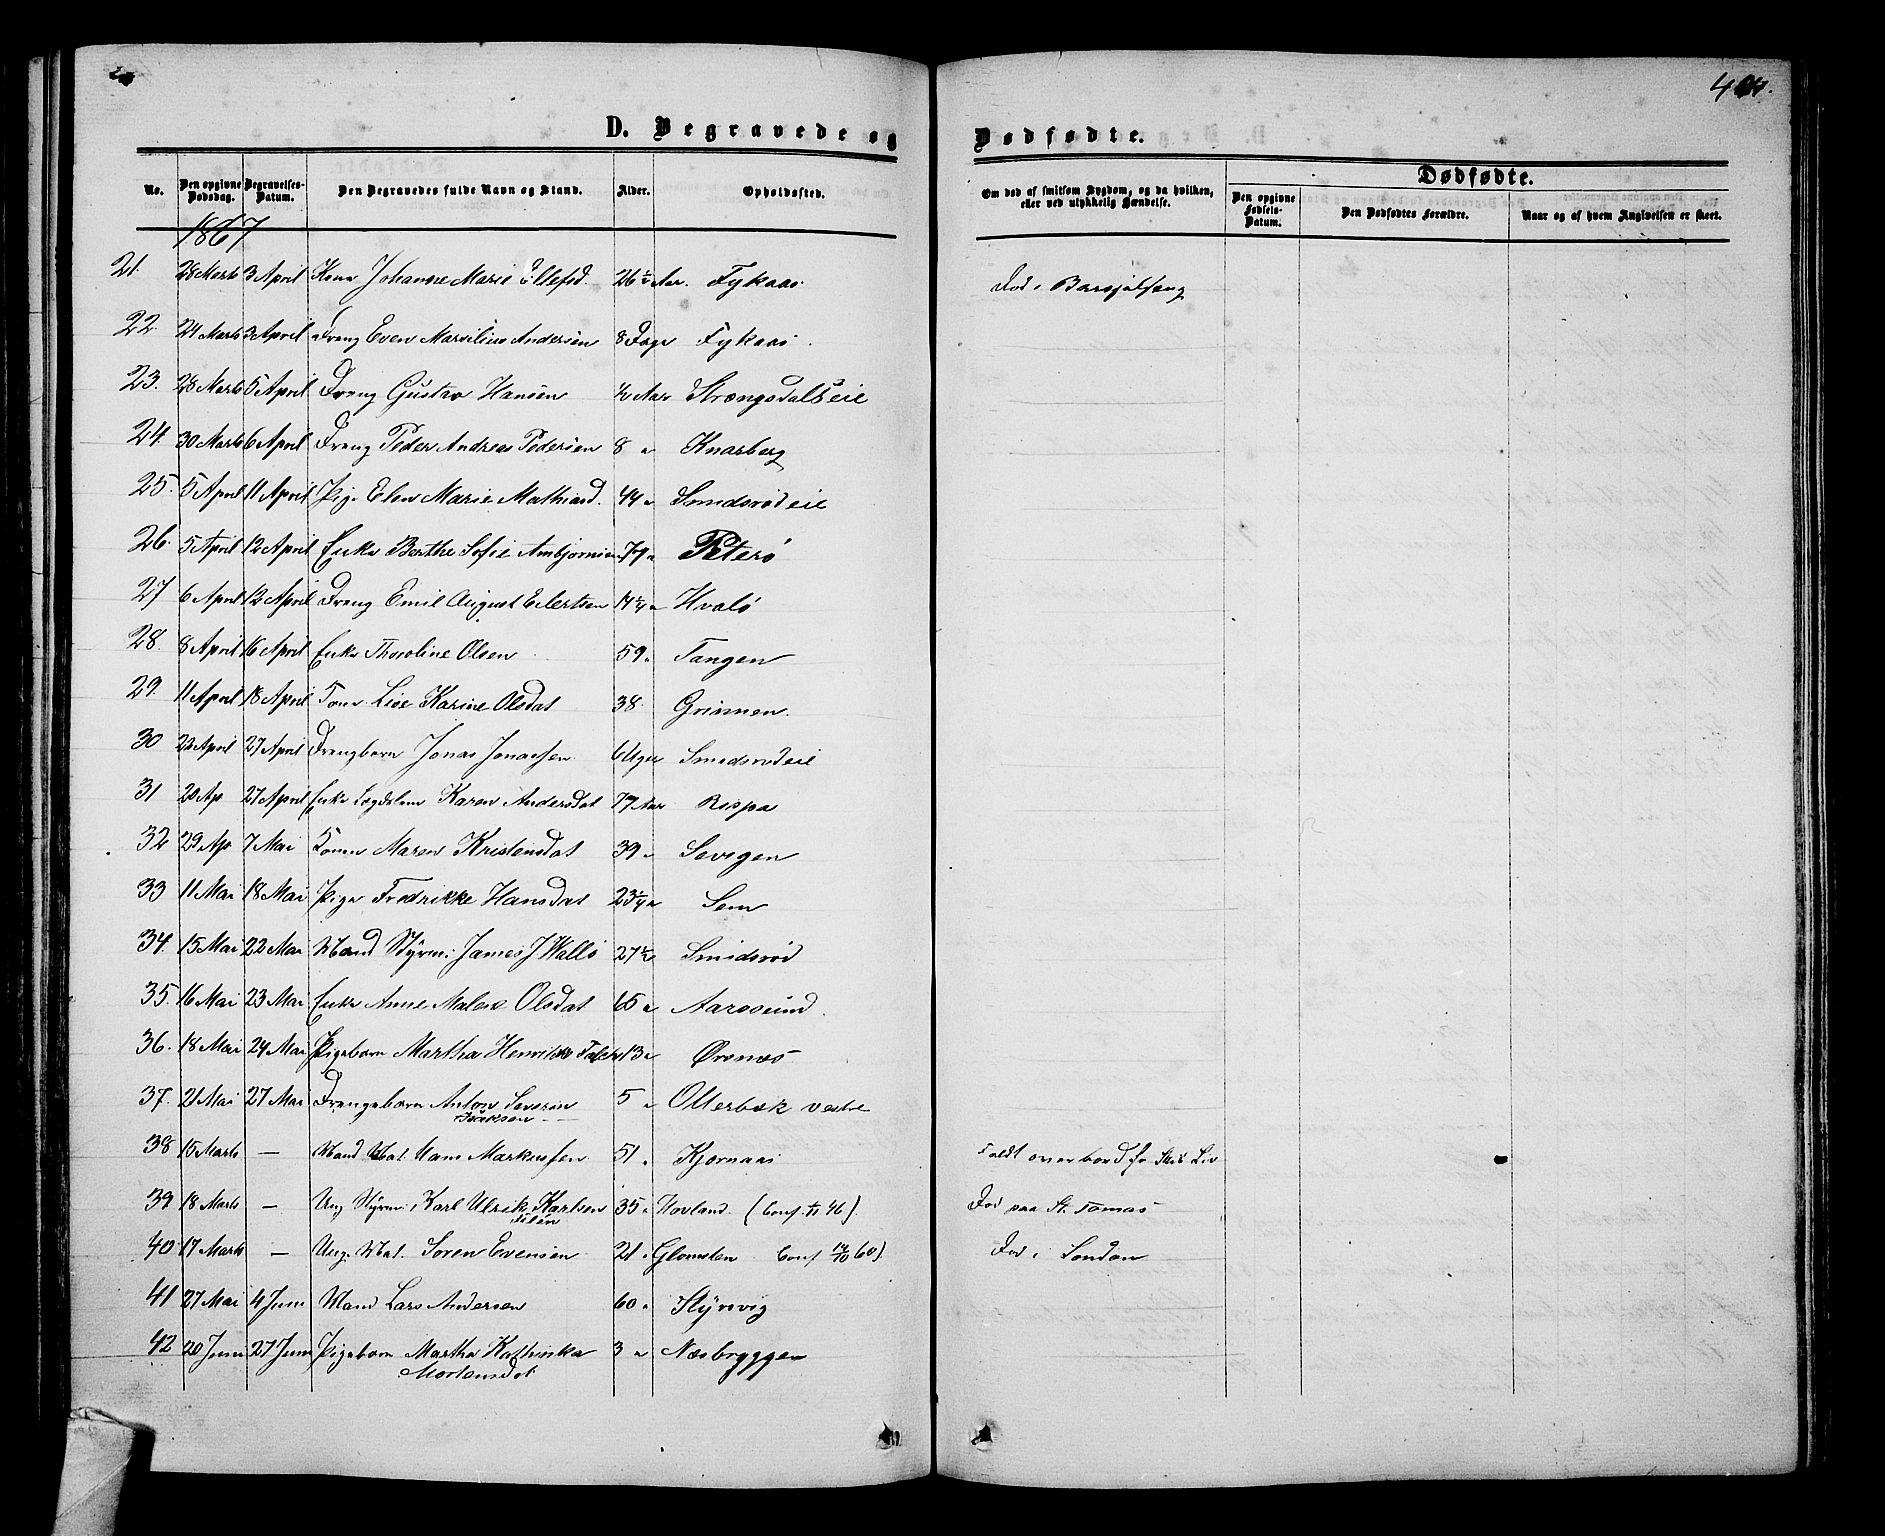 D. Begravede og Dødfødte.
No. Den opgivne Dødsdag. Begravelses-Datum. Den Begravedes fulde Navn og Stand. Alder. Opholdssted. Om død af smitsom Sygdom, og da hvilken, eller ved ulykkelig Hændelse. Dødfødte. Den opgivne Fødsels-Datum. Den Dødfødtes Forældre. Naar og af hvem Angivelsen er skeet.
1867
21. 28 Marts 3 April Kone Johanne Marie Ellefsd. 26 ½ Aar. Fykaas. Død i Barsjelseng
22. 24 Marts 3 April Dreng Even Marselius Andersen 8 Dage Fykaas.
23. 28 Marts 5 April Dreng Gustav Hansen ½ Aar Strængsdalseie
24. 30 Marts 6 April Dreng Peder Andreas Pedersen 8 " Knarberg
25. 5 April 11 April Pige Elen Marie Mathiasd. 44 " Smidsrødeie
26. 5 April 12 April Enke Berthe Sofie Ambjørnsen 79 " Peterø
27 6 April 12 April Dreng Emil August Eilertsen 14 ¼ " Hvalø
28. 8 April 16 April Enke Thoroline Olsen 59 " Tangen
29. 11 April 18 April Kone Lise Karine Olsdat 38 Grimmen.
30 22 April 27 April Drengbarn Jonas Jonassen 6 Uger Smidsrødeie
31 20 Ap. 27 April Enke Lægdslem Karen Andersdat 79 Aar Røspa
32 29 Ap. 7 Mai Konen Maren Kristensdat 39 "
33 11 Mai 18 Mai Pige Fredrikke Hansdat 23 ¼ " Sem
34. 15 Mai 22 Mai Mand Styrm: James J Wallø 27 ½ Smidsrød
35. 16 Mai 23 Mai Enke Anne Malene Olsdat 65 " Aarøsund.
36. 18 Mai 24 Mai Pigebarn Martha Henrikke 13 " Ørsnæs
37. 21 Mai 27 Mai Drengebarn Anton Severin Isaksen 5 " Otterbæk vestre
38 15 Marts — Mand Mat. Hans Markussen 51 " Kjørnaas Faldt overbord fr Skib Liv
39 18 Marts — Ung Styrm: Karl Ulrik Karlsen 35 " Hovland. (Conf. 46). Død paa St. Tomas
40 17 Marts — Ung. Mat. Søren Evensen 21 " Glomsten Conf 14/10 60) Død i London
41 27 Mai 4 Juni Mand Lars Andersen 60 " Styrsvig
42 20 Juni 27 Juni Pigebarn Martha Kathinka Mortensdat 3 " Næsbryggen